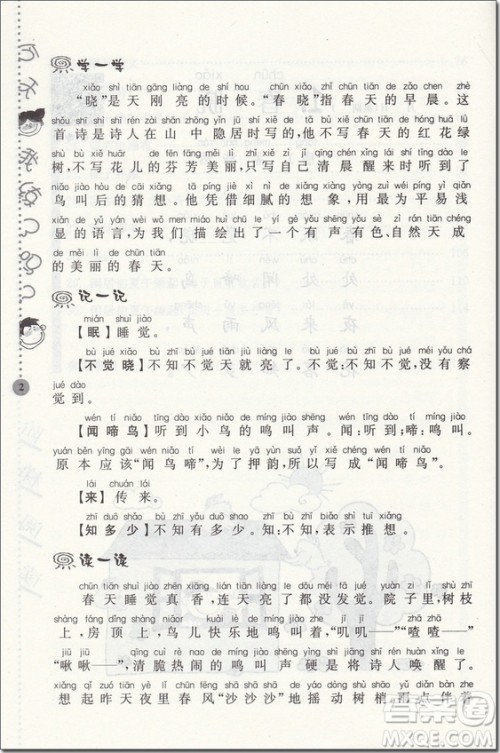 学一学
xiǎo shì tiān gāng liàng de shí hou chūn xiǎo zhǐ chūn tiān de zǎo chen zhè
“晓”是天刚亮的时候。“春晓”指春天的早晨。这
shǒu shī shì shī rén zài shān zhōng yǐn jū shí xiě de shī rén bù xiě chūn tiān de hóng huā lǜ
首诗是诗人在山中隐居时写的,诗人不写春天的红花绿
shù bù xiě huār de fēn fāng měi lì zhǐ xiě zì jǐ qīng chén xǐng lái shí tīng dào le
树,不写花儿的芬芳美丽,只写自己清晨醒来时听到了
niǎo jiào hòu de cāi xiǎng tā píng jiè xì nì de xiǎng xiàng yòng zuì wéi píng yì qiǎn
鸟叫后的猜想。他凭借细腻的想象,用最为平易浅
xiǎn de yǔ yán wèi wǒ men miáo huì chū le yí gè yǒu shēng yǒu sè dà zì rán tiān chéng
显的语言,为我们描绘出了一个有声有色、大自然天成
de měi lì de chūn tiān
的美丽的春天。
记一记
mián shuì jiào
【眠】睡觉。
bù jué xiǎo bù zhī bù jué tiān jiù liàng le bù jué bù zhī bù jué méi yǒu chá
【不觉晓】不知不觉天就亮了。不觉:不知不觉,没有察
jué dào
觉到。
wén tí niǎo tīng dào xiǎo niǎo de míng jiào shēng wén tīng dào tí míng jiào
【闻啼鸟】听到小鸟的鸣叫声。闻:听到;啼:鸣叫,
yuán běn yīng gāi wén niǎo tí wèi le yā yùn suǒ yǐ xiě chéng wén tí niǎo
原本应该“闻鸟啼”,为了押韵,所以写成“闻啼鸟”。
lái chuán lái
【来】传来。
zhī duō shǎo bù zhī yǒu duō shǎo zhī bù zhī biǎo shì tuī xiǎng
【知多少】不知有多少。知:不知,表示推想。
读一读
chūn tiān shuì jiào zhēn xiāng lián tiān liàng le dōu méi fā jué yuàn zi lǐ shù zhī
春天睡觉真香,连天亮了都没发觉。院子里,树枝
shàng fáng dǐng shàng niǎor kuài lè de míng jiào zhe jī jī zhā zhā
上,房顶上,鸟儿快乐地鸣叫着,“叽叽——”“喳喳——”
jiū jiū qīng cuì yuè ěr de míng jiào shēng yìng shì jiāng shī rén huàn xǐng le
“啾啾——”清脆悦耳的鸣叫声硬是将诗人唤醒了。
xiǎng qǐ zuó tiān yè lǐ chūn fēng shā shā shā de yáo dòng shù shāo yǔ diǎn bàn zhe
想起昨天夜里春风“沙沙沙”地摇动树梢,雨点伴着
2
答案圈
MXQE.COM